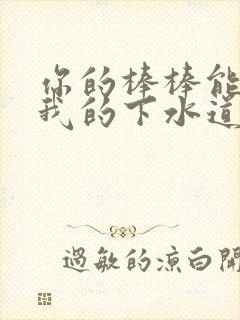 你的棒棒能
我的下水道
过敏的凉白开